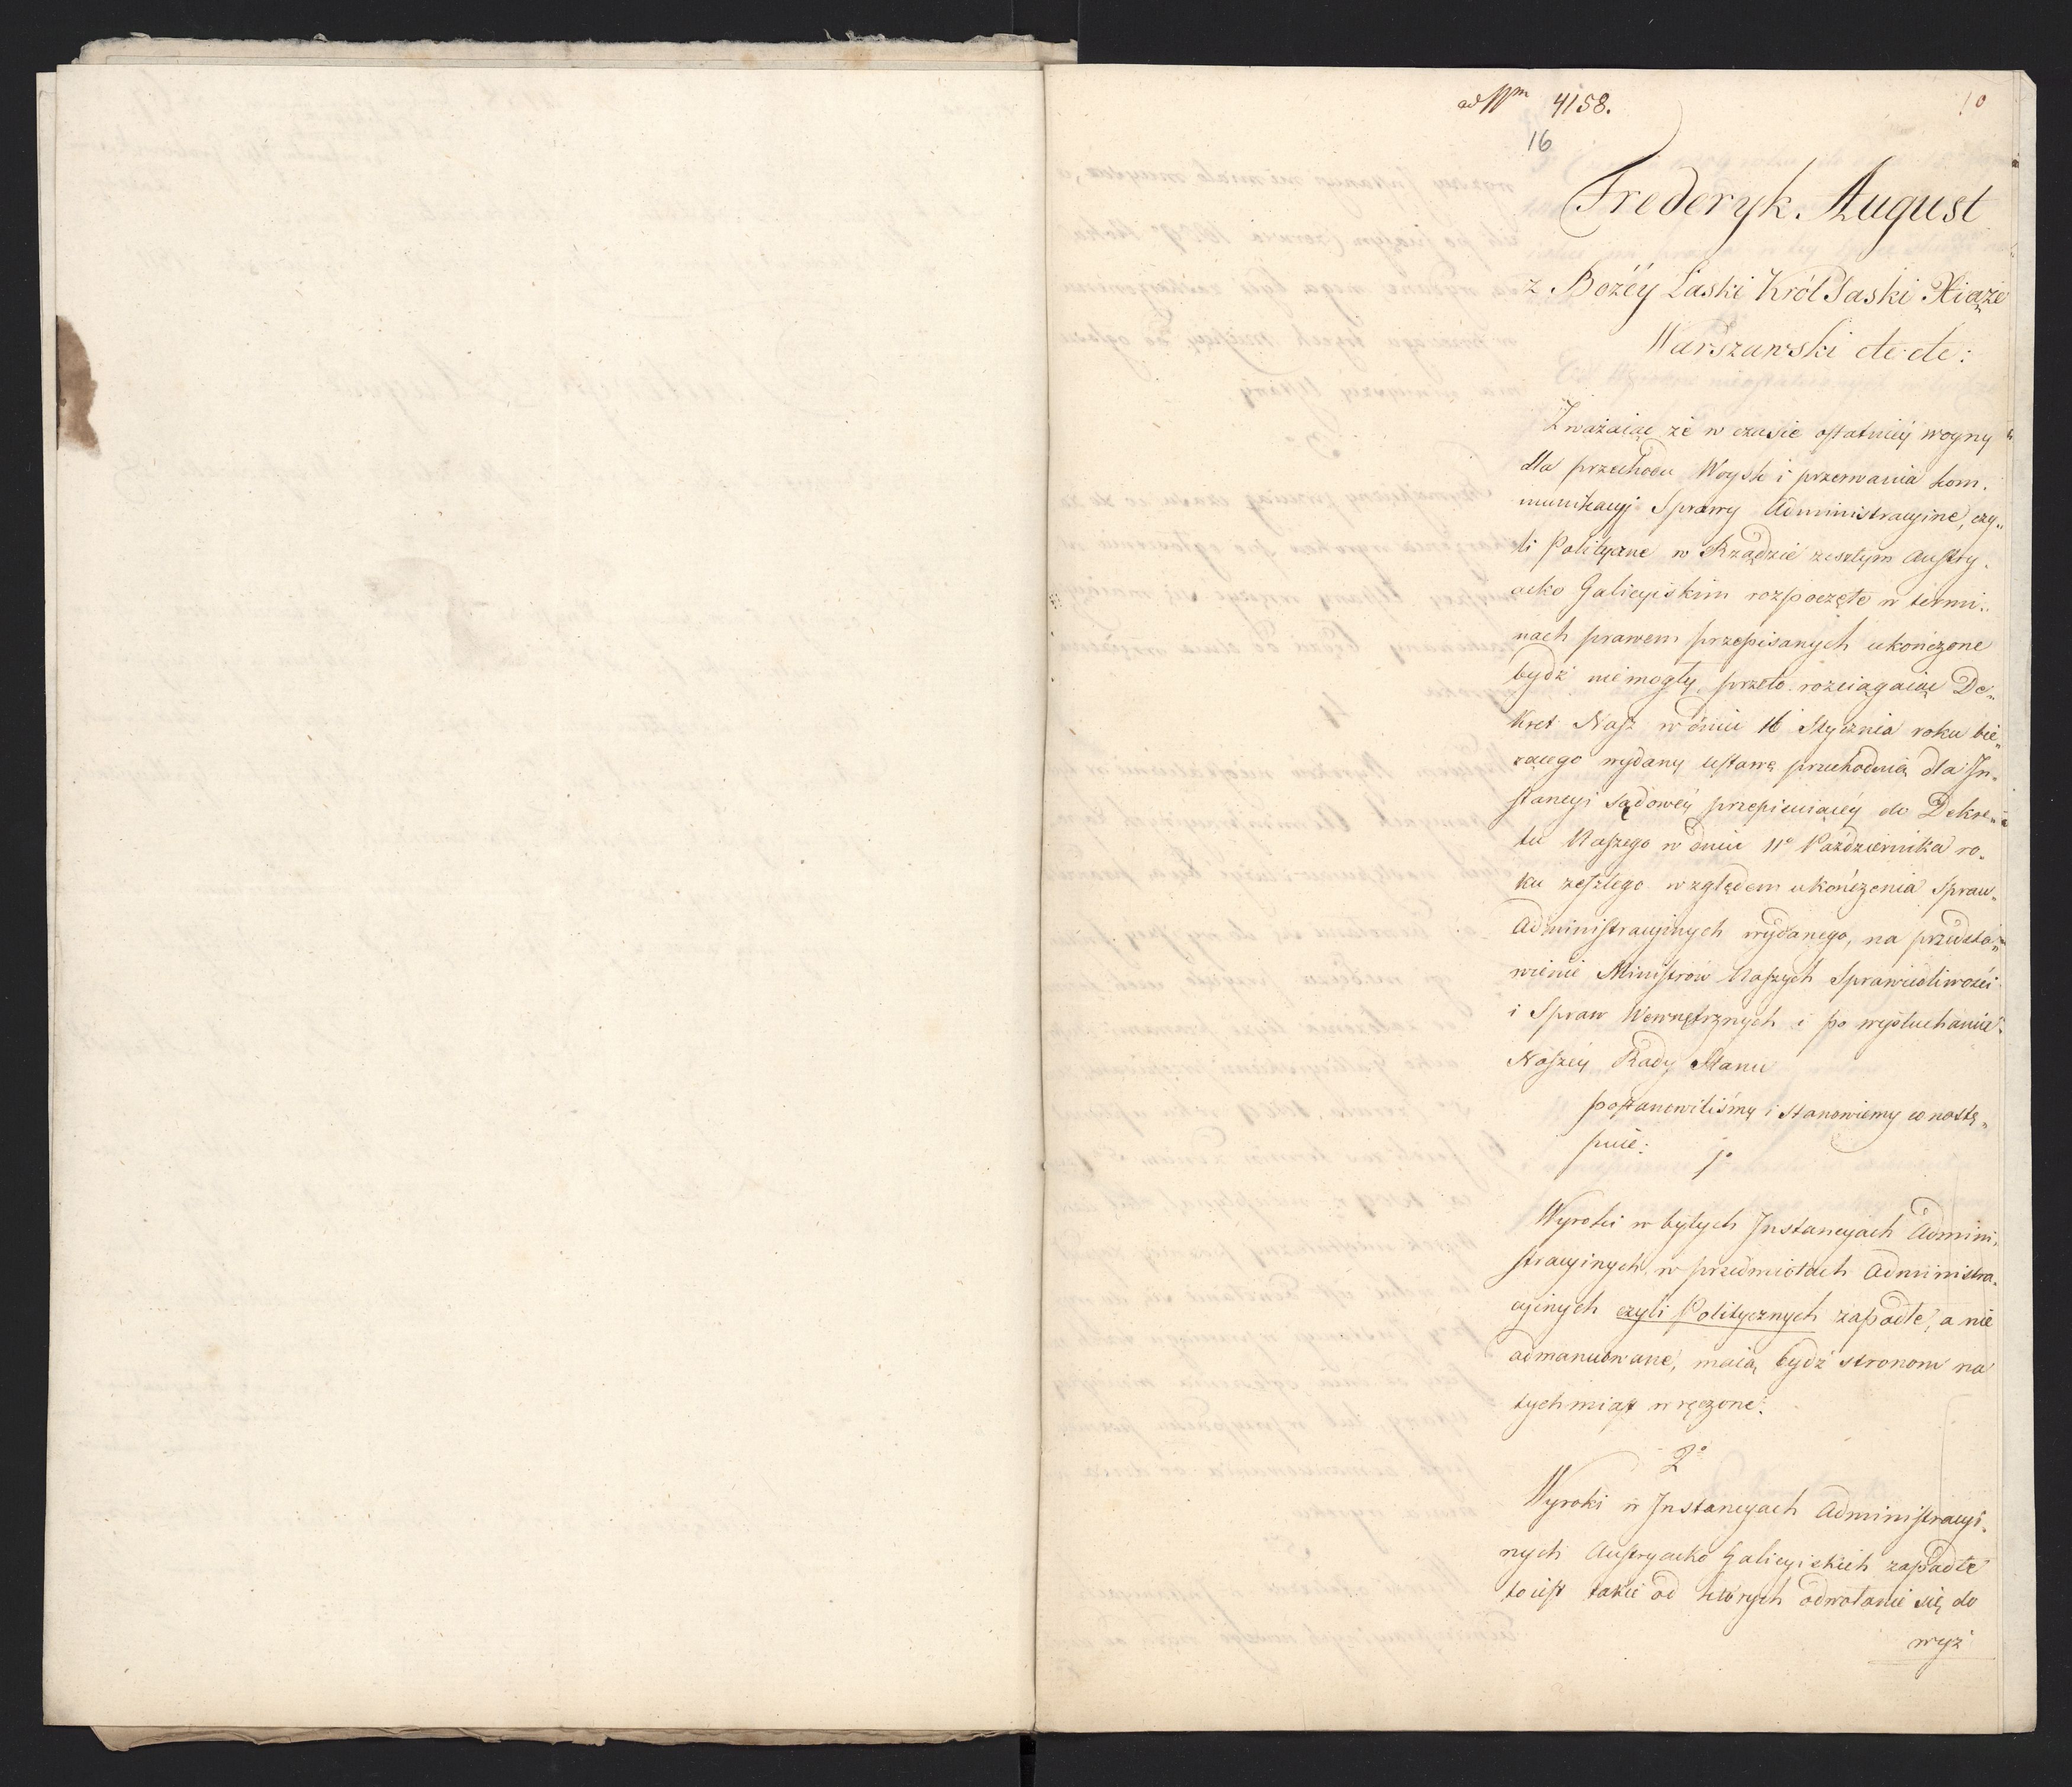 ad Nrm 4158.
10
16
Frederyk August
z Bożéy Łaski Król Saski Xiąże
Warszawski etc: etc:
Zważaiąc że w czasie ostatniéy woyny
dla przechodu Woysk i przerwania kom„
munikacyj Sprawy Administracyine, czy„
li Polityczne w Rządzie zeszłym Austry„
acko Galicyiskim rozpoczęte w termi„
nach prawem przepisanych ukończone
bydź niemogły, przeto rozciągaiąc De„
kret Nasz w dniu 16 Stycznia roku bie„
żącego wydany Ustawę przechodnią dla In„
stancyi sądowéy przepisuiącéy do Dekre„
tu Naszego w dniu 11° Października ro„
ku zeszłego względem ukończenia Spraw„
Administracyinych wydanego, na przedsta„
wienie Ministrów Naszych Sprawiedliwości
i Spraw Wewnętrznych i po wysłuchaniu
Naszéy Rady Stanu
postanowiliśmy i stanowiemy co nastę„
puie:
1°
Wyroki w byłych Instancyach Admini„
stracyinych, w przedmiotach Administra„
cyinych czyli Politycznych zapadłe, a nie
admanuowane, maią bydź stronom na
tychmiast wręczone.
2°
Wyroki w Instancyach Administracyi„
nych Austryacko Galicyiskich zapadłe
to iest takie od których odwołanie się do
wyż